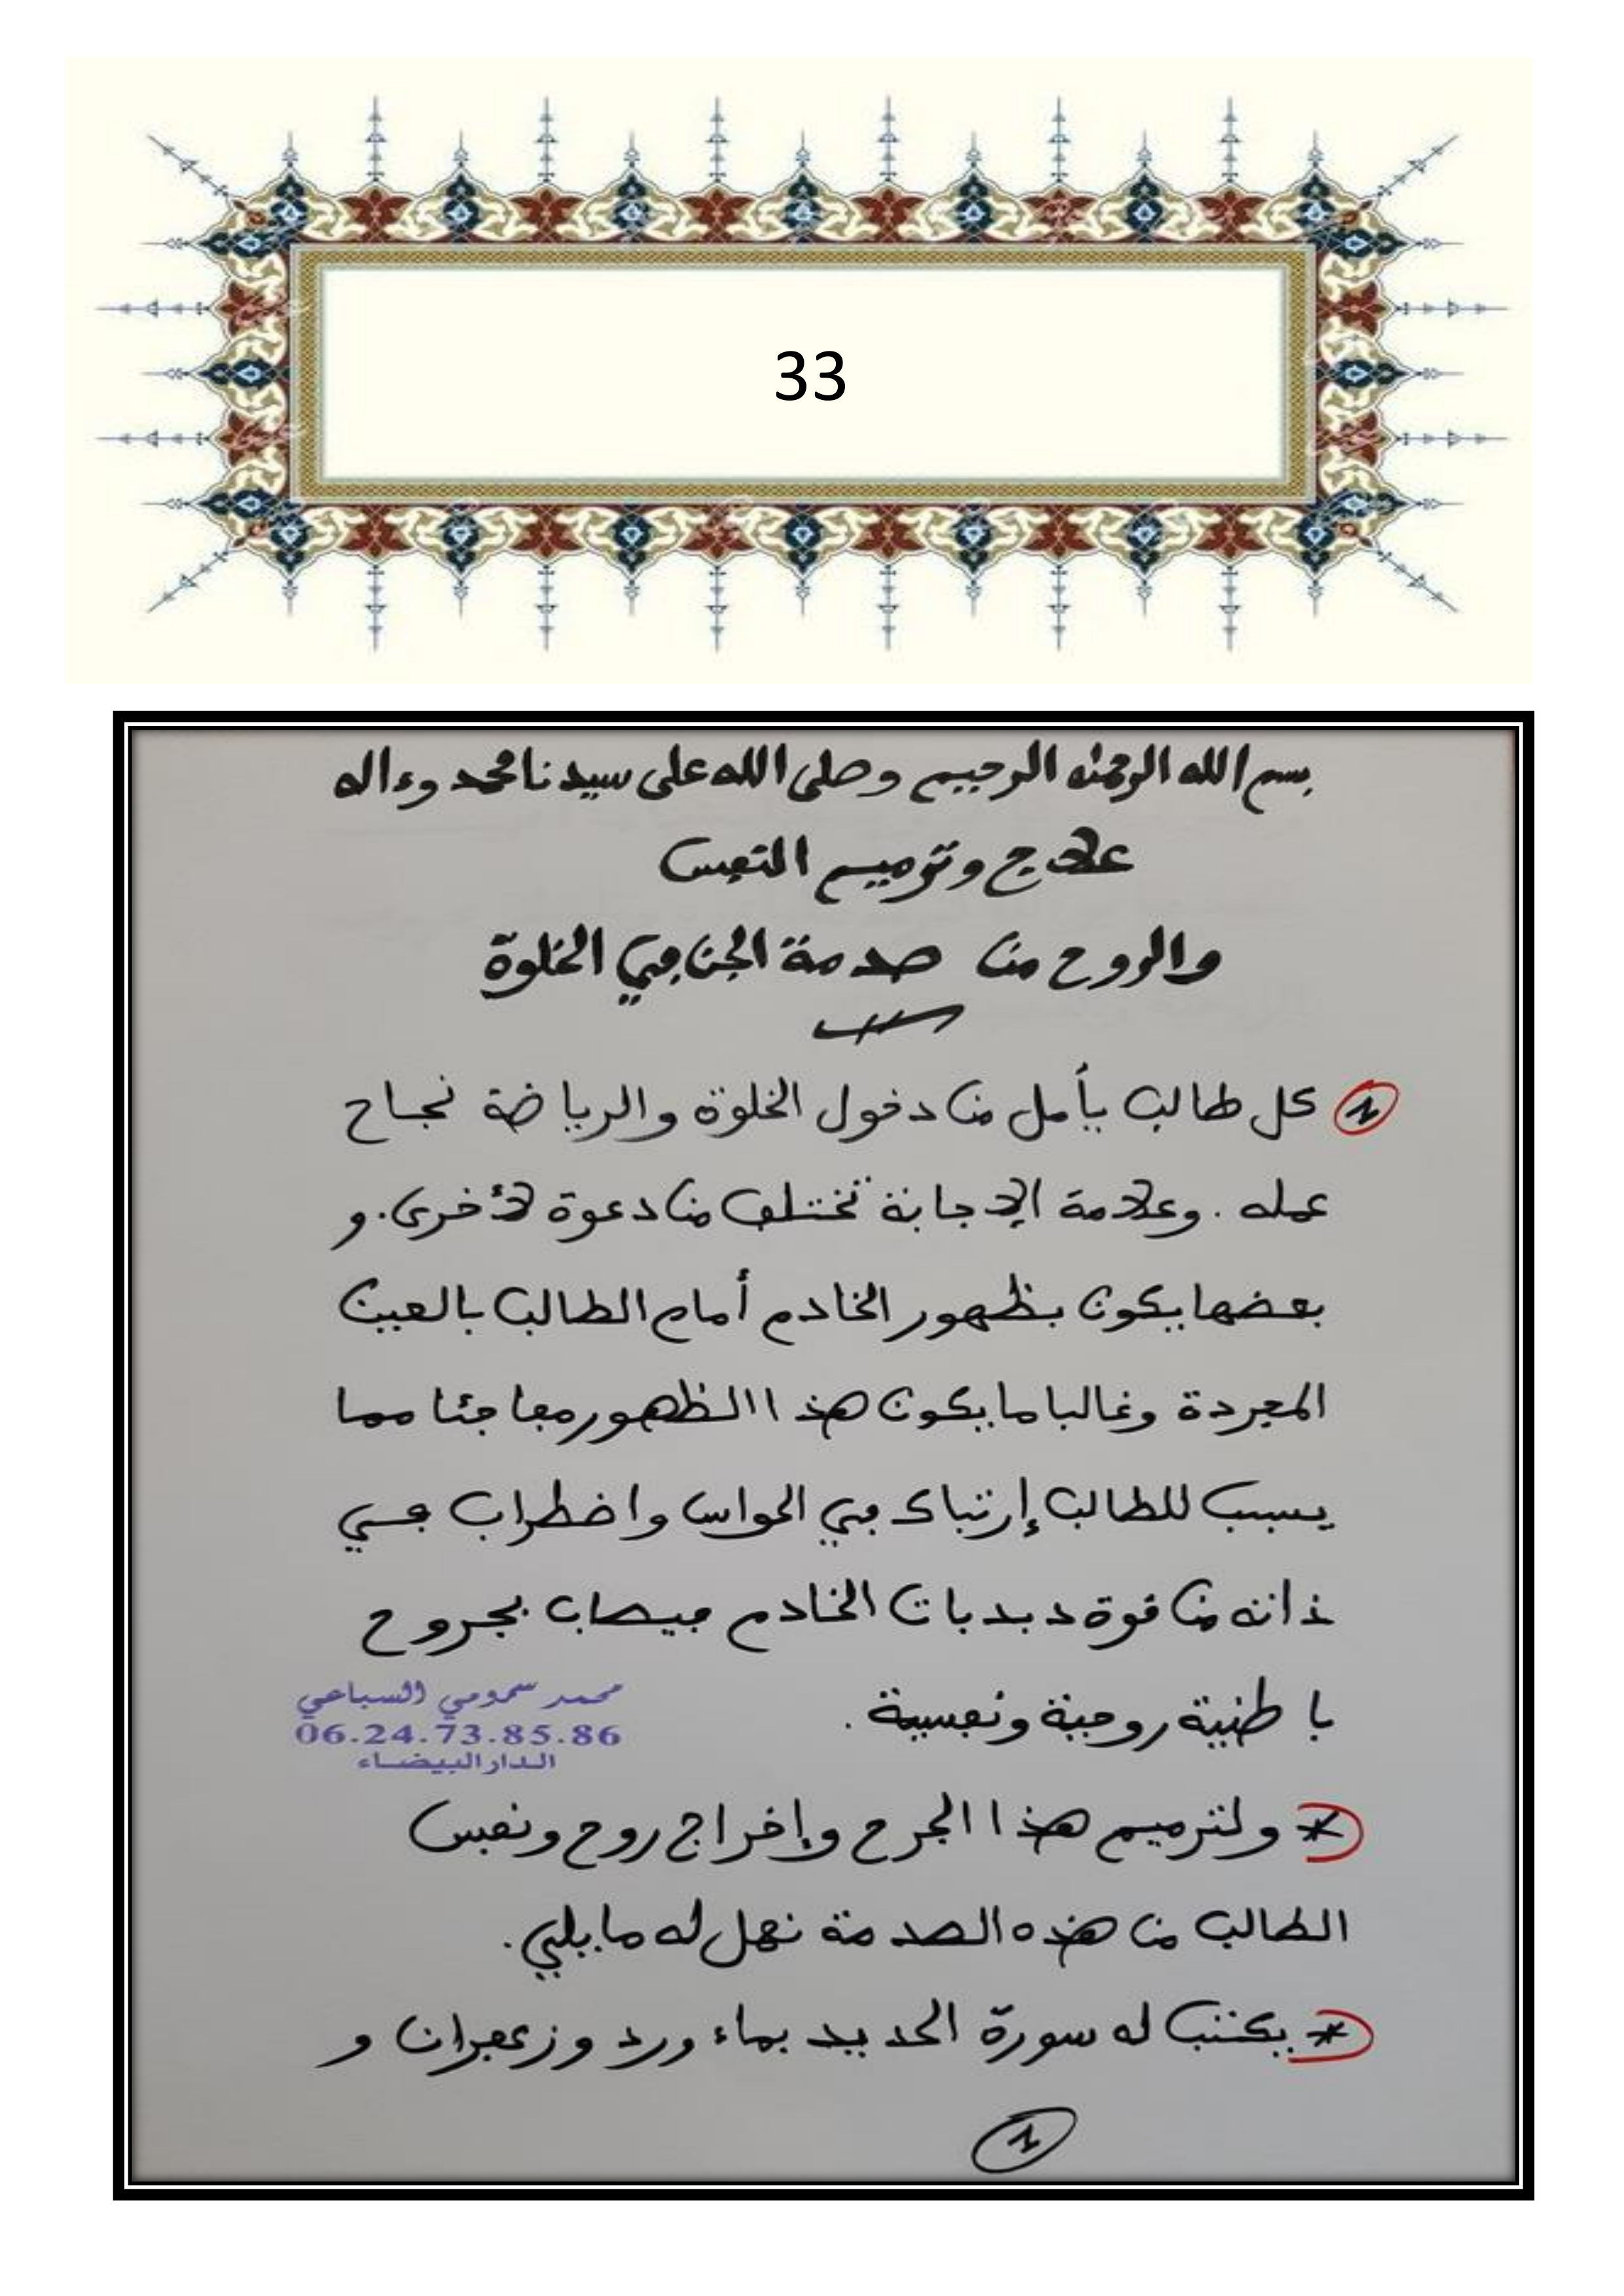 33
بسم الله الرحمن الرحيم وصلى الله على سيدنا محمد وءاله
علاج وترميم النفس
والروح من صدمة الجن في الخلوة
1 كل طالب يأمل من دخول الخلوة والرياضة نجاح
عمله . وعلامة الإجابة تختلف من دعوة لأخرى . و
بعضها يكون بظهور الخادم أمام الطالب بالعين
المجردة وغالبا ما يكون هذا الظهور مفاجئا مما
يسبب للطالب إرتباك في الحواس واضطراب في
ذاته من قوة دبدبات الخادم فيصاب بجروح
باطنية روحية ونفسية .
محمد سمومي السباعي
06.24.73.85.86
الدار البيضاء
* ولترميم هذا الجرح وإخراج روح ونفس
الطالب من هذه الصدمة نعمل له ما يلي .
* يكتب له سورة الحديد بماء ورد وزعفران و
1